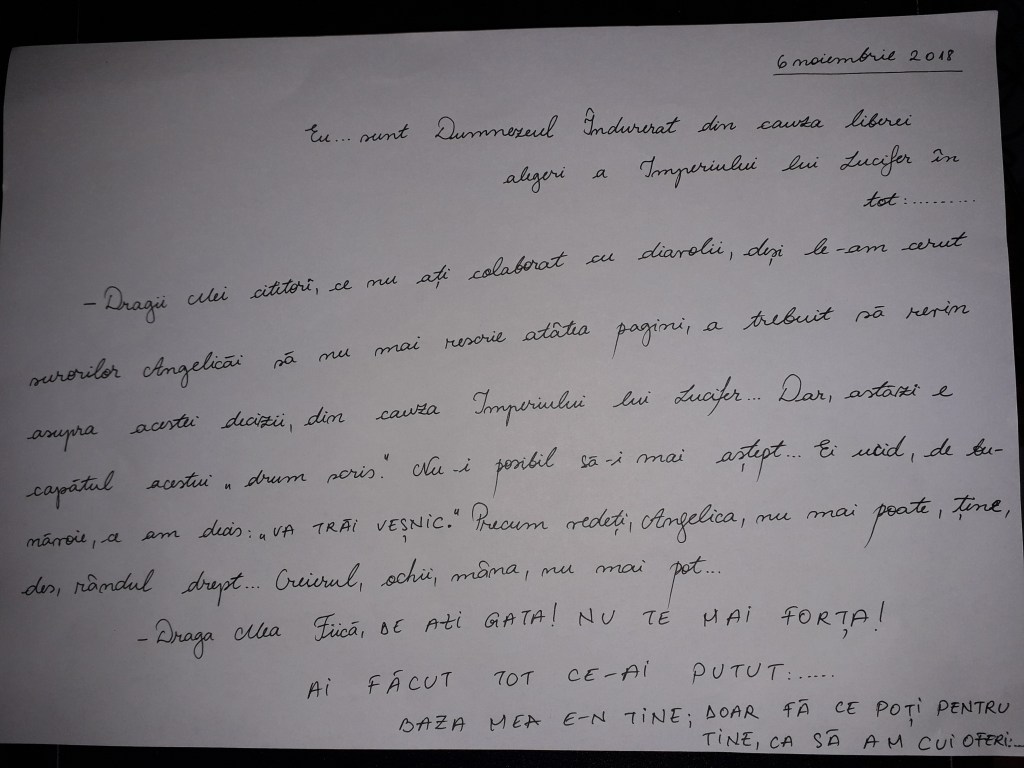 6 noiembrie 2018
Eu... sunt Dumnezeul Îndurerat din cauza liberei
alegeri a Imperiului lui Lucifer în
tot:.........
- Dragii Mei cititori, ce nu ați colaborat cu diavolii, deși le-am cerut
surorilor Angelicăi să nu mai rescrie atâtea pagini, a trebuit să revin
asupra acestei decizii, din cauza Imperiului lui Lucifer... Dar, astăzi e
capătul acestui „drum scris." Nu-i posibil să-i mai aștept... Ei ucid, de bu-
năvoie, ce am decis: „VA TRĂI VEȘNIC." Precum vedeți, Angelica, nu mai poate, ține,
des, rândul drept... Creierul, ochii, mâna, nu mai pot...
- Draga Mea Fiică, DE AZI GATA! NU TE MAI FORȚA!
AI FĂCUT TOT CE-AI PUTUT:.....
BAZA MEA E-N TINE; DOAR FĂ CE POȚI PENTRU
TINE, CA SĂ AM CUI OFERI:...